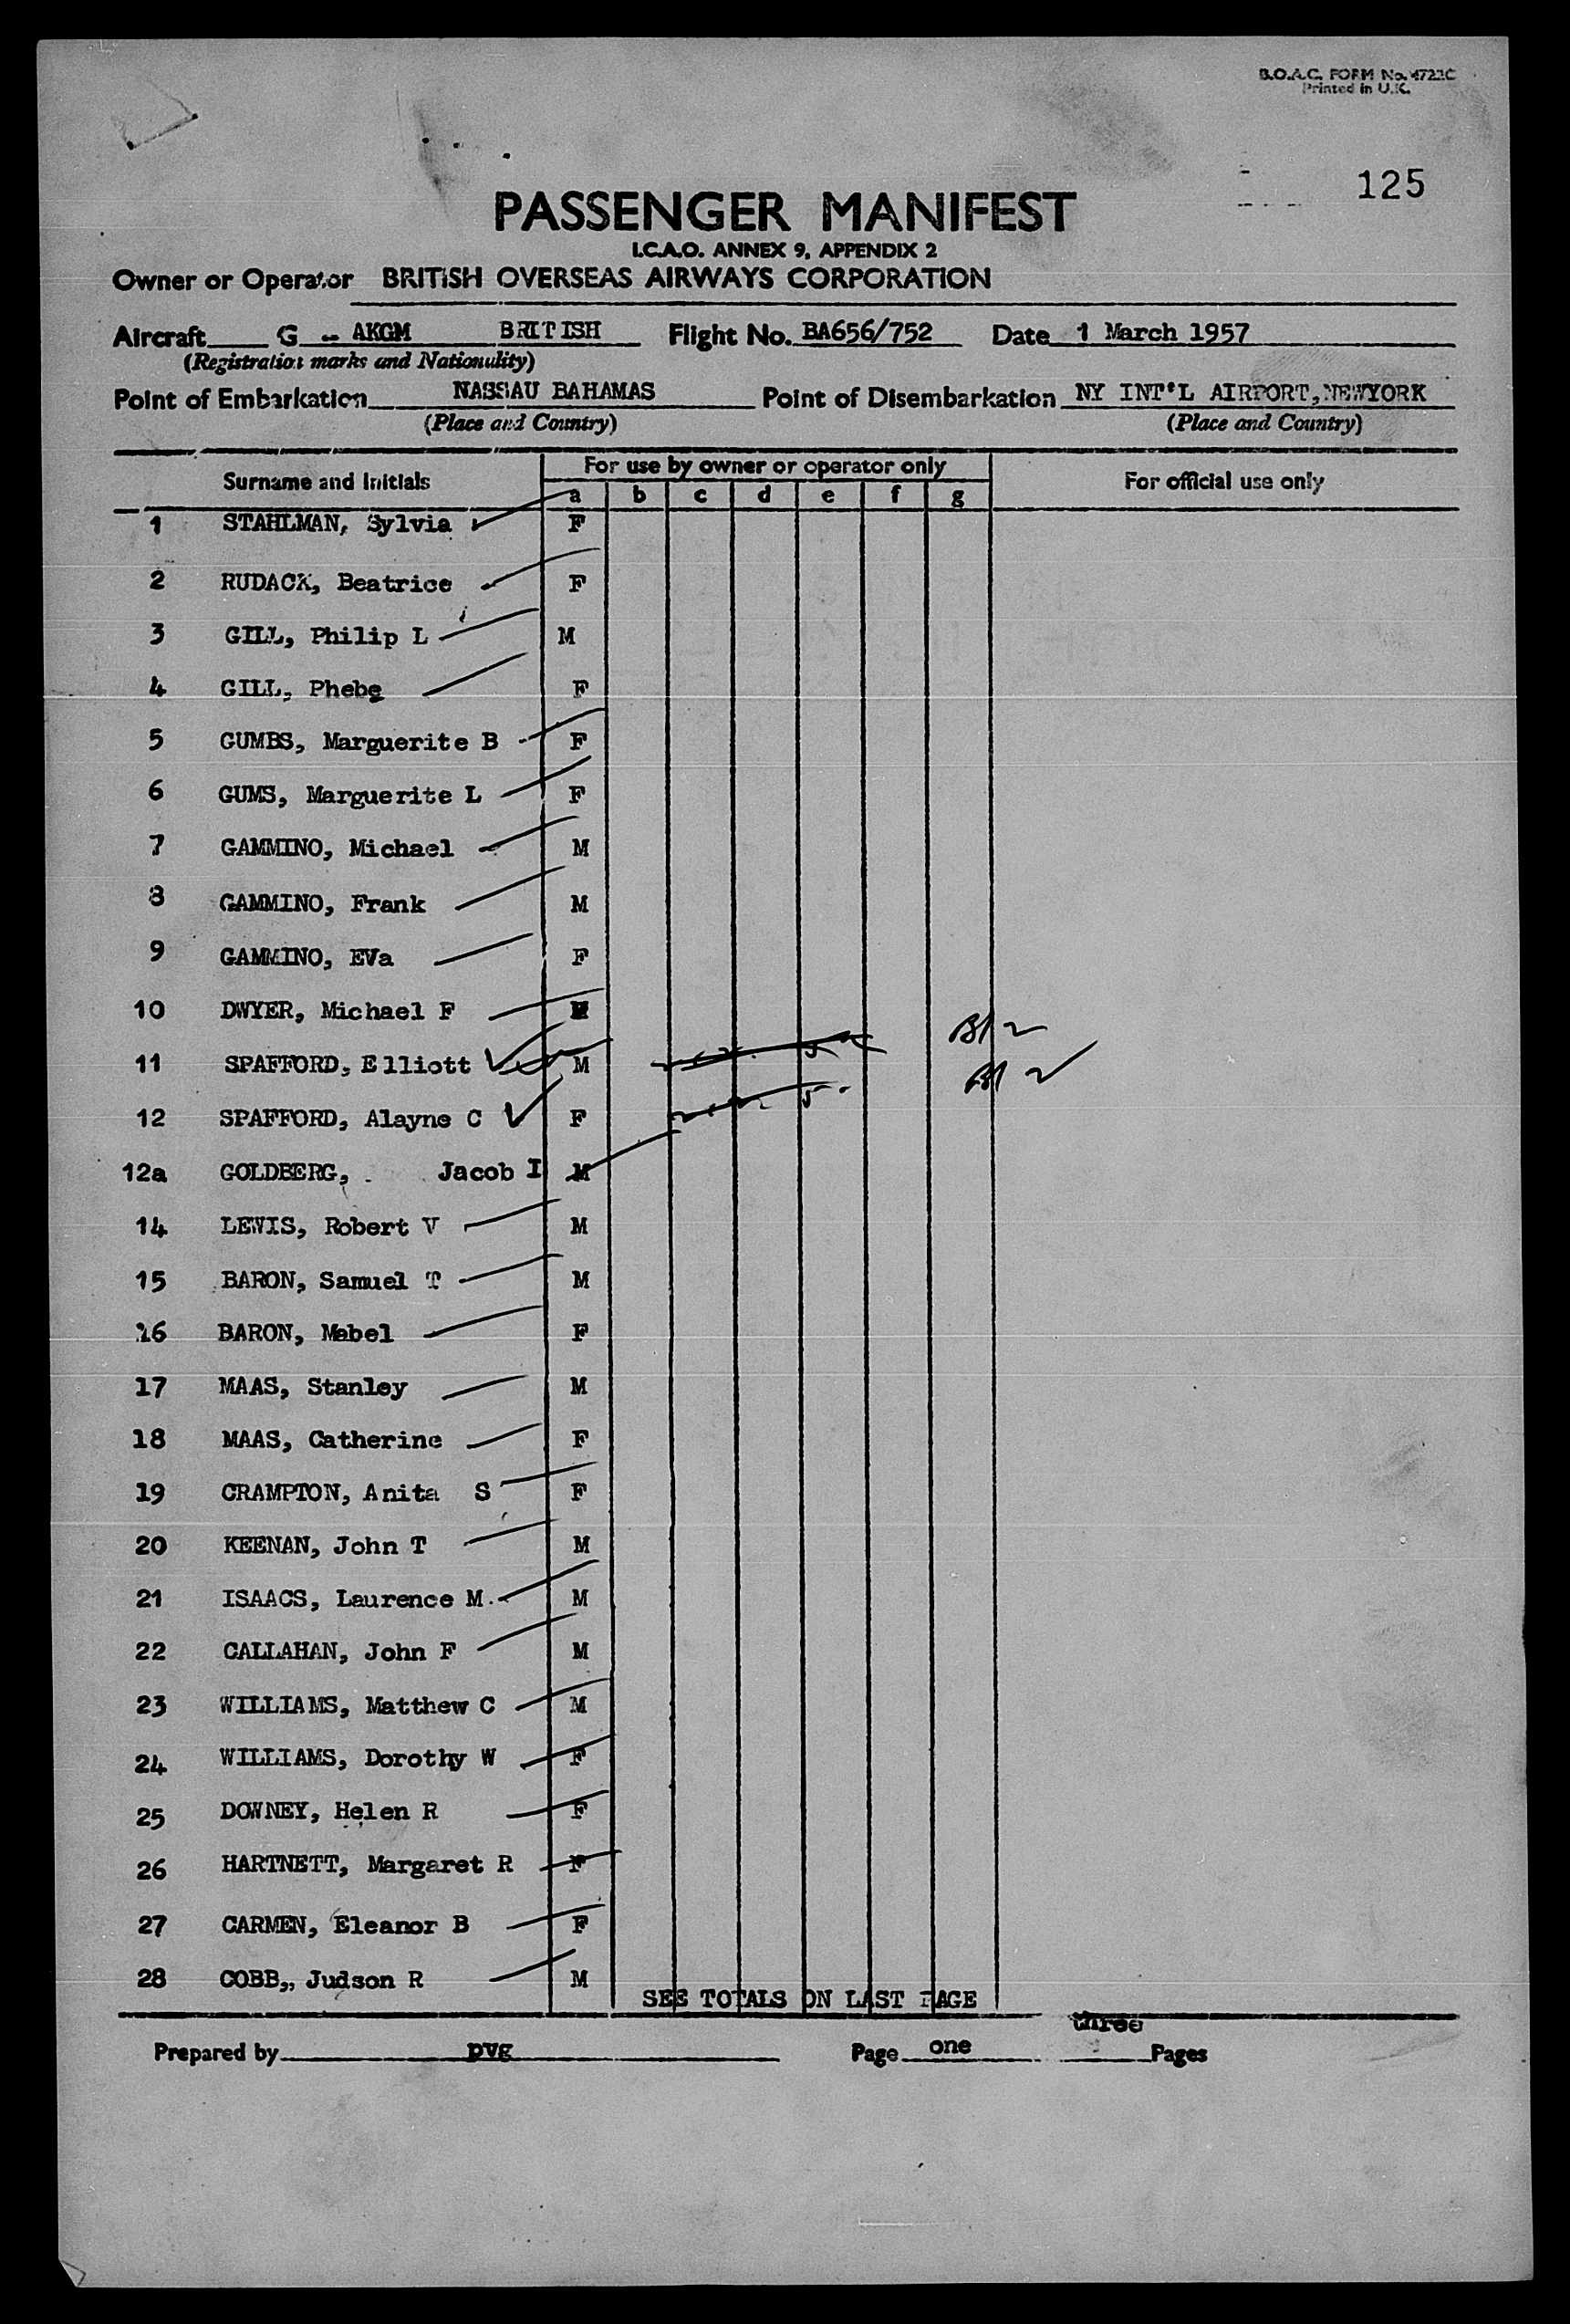 B.O.A.C. FORM No. 4722C
Printed in U.K.
125
PASSENGER MANIFEST
I.C.A.O. ANNEX 9, APPENDIX 2
Owner or Operator BRITISH OVERSEAS AIRWAYS CORPORATION
Aircraft G - AKGM BRITISH Flight No. BA656/752 Date 1 March 1957
(Registration marks and Nationality)
Point of Embarkation NASSAU BAHAMAS Point of Disembarkation NY INT'L AIRPORT, NEWYORK
(Place and Country) (Place and Country)
Surname and Initials For use by owner or operator only For official use only
a b c d e f g
1 STAHLMAN, Sylvia F
2 RUDACK, Beatrice F
3 GILL, Philip L M
4 GILL, Phebe F
5 GUMBS, Marguerite B F
6 GUMS, Marguerite L F
7 GAMMINO, Michael M
8 GAMMINO, Frank M
9 GAMMINO, EVa F
10 DWYER, Michael F M
11 SPAFFORD, Elliott M
12 SPAFFORD, Alayne C F
12a GOLDBERG, Jacob I M
14 LEWIS, Robert V M
15 BARON, Samuel T M
16 BARON, Mabel F
17 MAAS, Stanley M
18 MAAS, Catherine F
19 CRAMPTON, Anita S F
20 KEENAN, John T M
21 ISAACS, Laurence M. M
22 CALLAHAN, John F M
23 WILLIAMS, Matthew C M
24 WILLIAMS, Dorothy W F
25 DOWNEY, Helen R F
26 HARTNETT, Margaret R F
27 CARMEN, Eleanor B F
28 COBB,, Judson R M
SEE TOTALS ON LAST PAGE
Prepared by pvg Page one three Pages